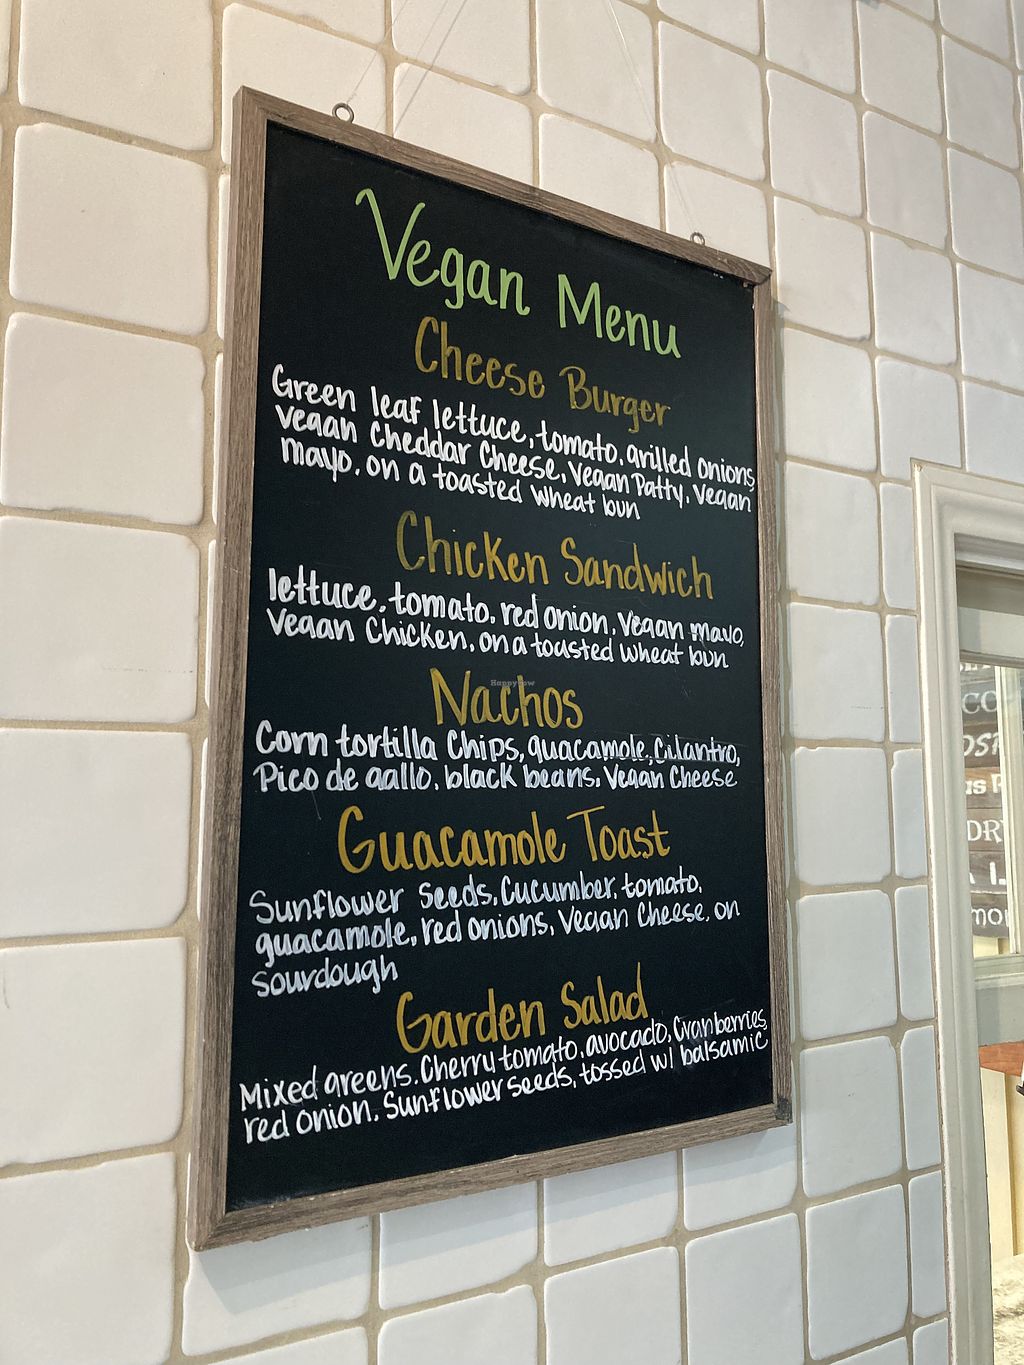 Vegan Menu
Cheese Burger
Green leaf lettuce, tomato, grilled onions
vegan cheddar cheese, vegan patty, vegan
mayo, on a toasted wheat bun
Chicken Sandwich
lettuce, tomato, red onion, vegan mayo,
vegan chicken, on a toasted wheat bun
Nachos
Corn tortilla chips, guacamole, cilantro,
Pico de gallo, black beans, vegan cheese
Guacamole Toast
Sunflower seeds, cucumber, tomato,
guacamole, red onions, vegan cheese, on
sourdough
Garden Salad
Mixed greens, cherry tomato, avocado, cranberries,
red onion, sunflower seeds, tossed w/ balsamic
HappyCow